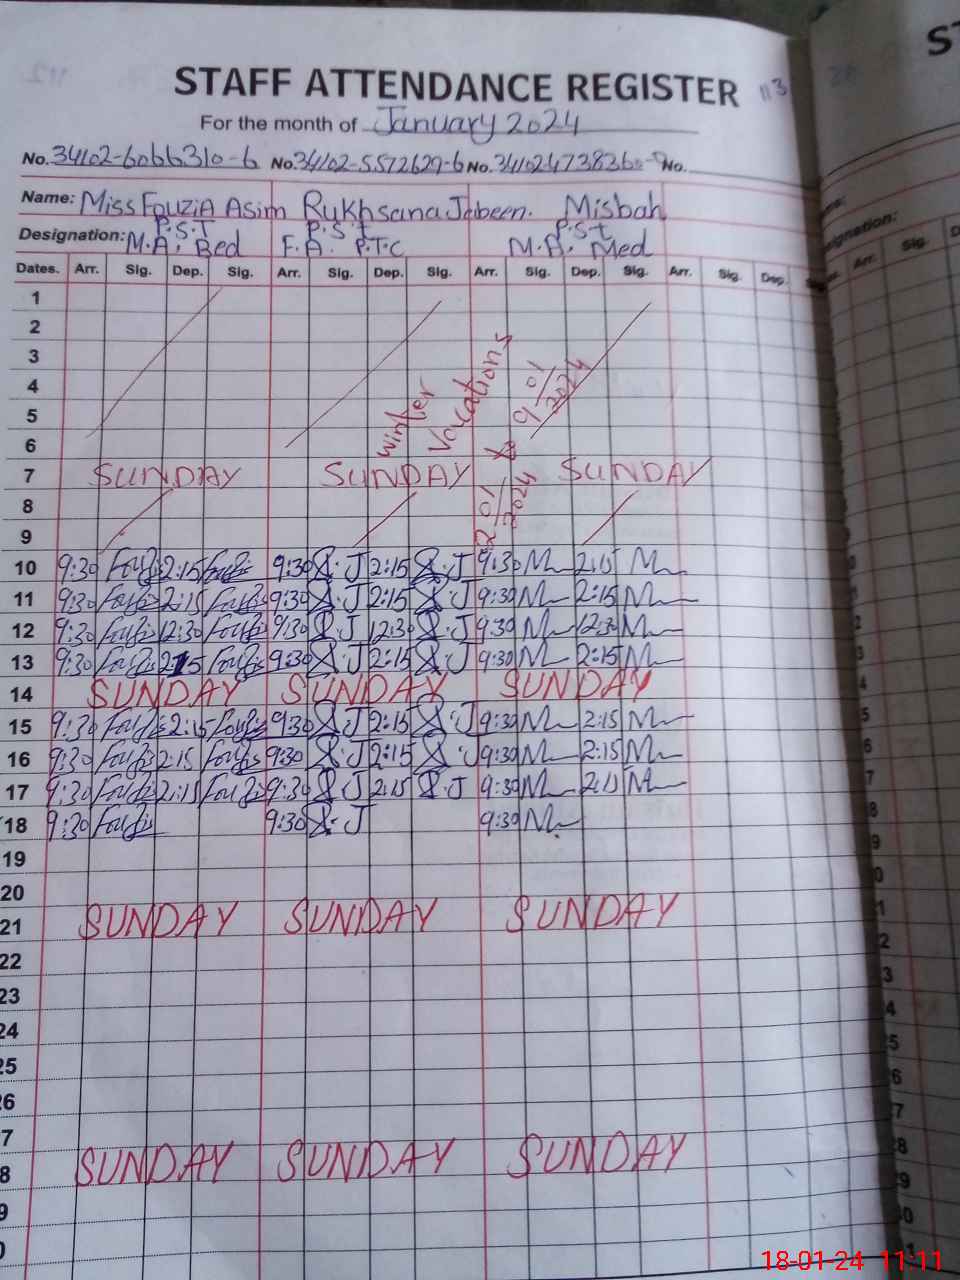 STAFF ATTENDANCE REGISTER 113
For the month of January 2024
No. 34102-6066310-6 No. 34102-5572629-6 No. No.
Name: Miss Fouzia Asim Rukhsana Jabeen. Misbah
P.S.T P.S.t P.S.t
Designation: M.A. Bed F.A. P.T.C M.A. Med
Dates. Arr. Sig. Dep. Sig. Arr. Sig. Dep. Sig. Arr. Sig. Dep. Sig. Arr. Sig. Dep.
1
2
3
4
5
6
winter
Vacations
2/01/2024 to 9/01/2024
7 SUNDAY SUNDAY SUNDAY
8
9
10 9:30 2:15 9:30 J 2:15 J 9:30 M 2:15 M
11 9:30 2:15 9:30 J 2:15 J 9:30 M 2:15 M
12 9:30 12:30 9:30 J 12:30 J 9:30 M 12:30 M
13 9:30 2:15 9:30 J 2:15 J 9:30 M 2:15 M
14 SUNDAY SUNDAY SUNDAY
15 9:30 2:15 9:30 J 2:15 J 9:30 M 2:15 M
16 9:30 2:15 9:30 J 2:15 J 9:30 M 2:15 M
17 9:30 2:15 9:30 J 2:15 J 9:30 M 2:15 M
18 9:30 9:30 J 9:30 M
19
20
21 SUNDAY SUNDAY SUNDAY
22
23
24
25
26
7
8 SUNDAY SUNDAY SUNDAY
9
0
18-01-24 11:11